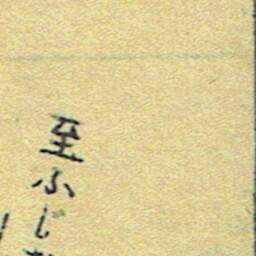 至ふじ